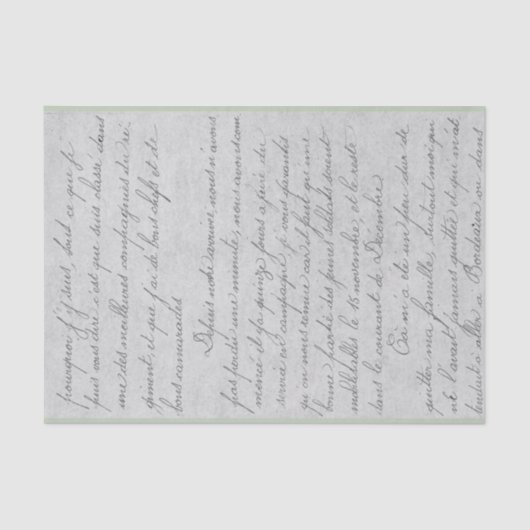 pourquoi j'y suis, tout ce que je
puis vous dire c'est que suis classé dans
une des meilleures compagnies du ré-
giment, et que j'ai de bons chefs et de
bons camarades
Depuis notre arrivée nous n'avons
pas perdu une minute, nous avons com
mencé il y a quinze jours a faire du
service en campagne, je vous garantis
qu'on nous remue car il faut qu'une
bonne partie des jeunes soldats soient
mobilisables le 15 novembre, et le reste
dans le courant de Décembre
Ça m'a été un peu dur de
quitter ma famille, surtout moi qui
ne l'avait jamais quitter et qui m'at
tendait à aller a Bordeaux ou dans